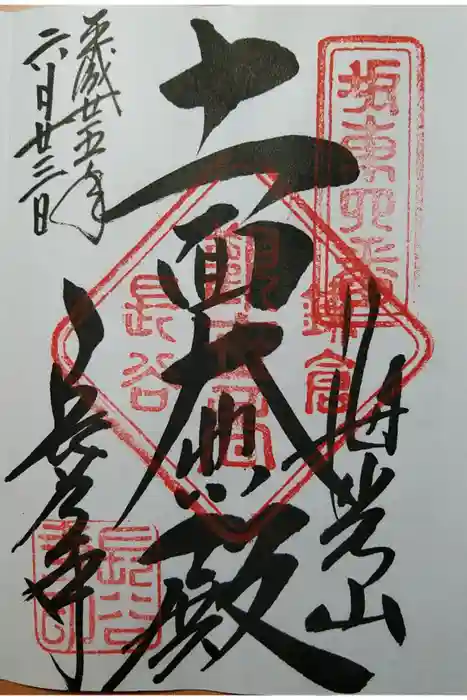 坂東四番
海光山
十一面大悲殿
鎌倉
長谷
平成廿五年
六月廿三日
長谷寺
長谷
寺印